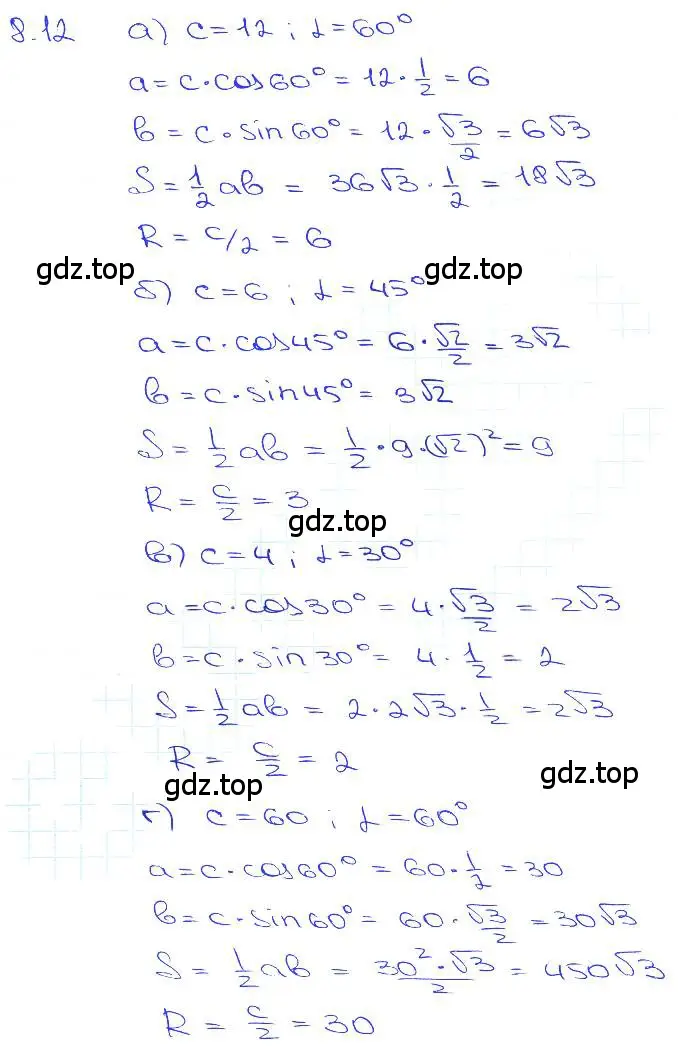 8.12 а) c=12 ; α=60°
a=c·cos60°=12·1/2=6
b=c·sin60°=12·√3/2=6√3
S=1/2ab=36√3·1/2=18√3
R=c/2=6
gdz.top gdz.top
б) c=6 ; α=45°
a=c·cos45°=6·√2/2=3√2
b=c·sin45°=3√2
S=1/2ab=1/2·9·(√2)²=9
R=c/2=3
gdz.top
в) c=4 ; α=30°
a=c·cos30°=4·√3/2=2√3
b=c·sin30°=4·1/2=2
S=1/2ab=2·2√3·1/2=2√3
R=c/2=2
gdz.top gdz.top
г) c=60 ; α=60°
a=c·cos60°=60·1/2=30
b=c·sin60°=60·√3/2=30√3
S=1/2ab=30²·√3/2=450√3
R=c/2=30